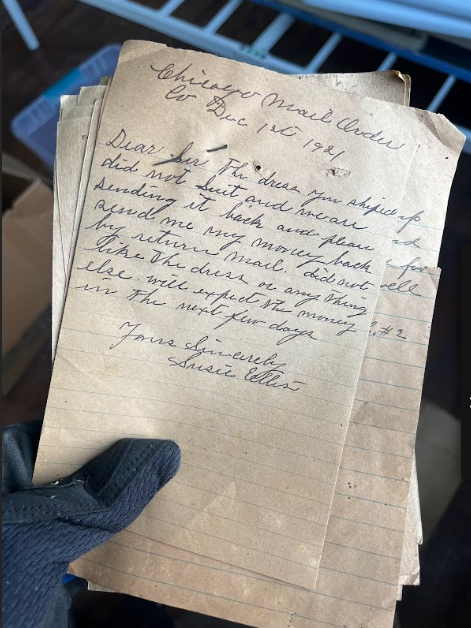 Chicago Mail Order
Co Dec 12th 1921
Dear Sir The dress you shiped up
did not suit and we are
sending it back and please
send me my money back
by return mail. did not
like the dress or any thing
else will expect the money
in the next few days
Yours Sincerely
Susie Ellis